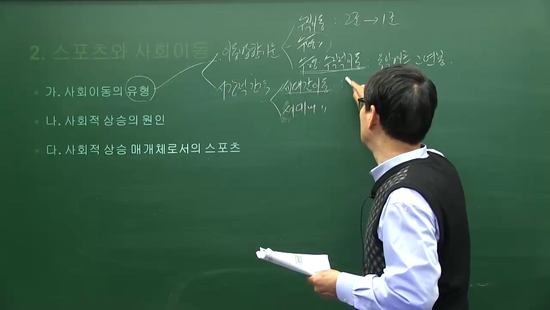 2. 스포츠와 사회이동
가. 사회이동의 유형
나. 사회적 상승의 원인
다. 사회적 상승 매개체로서의 스포츠
이동방향기준
수직이동 : 2군 → 1군
수평 〃
시간적 간격
세대간이동
세대내 〃